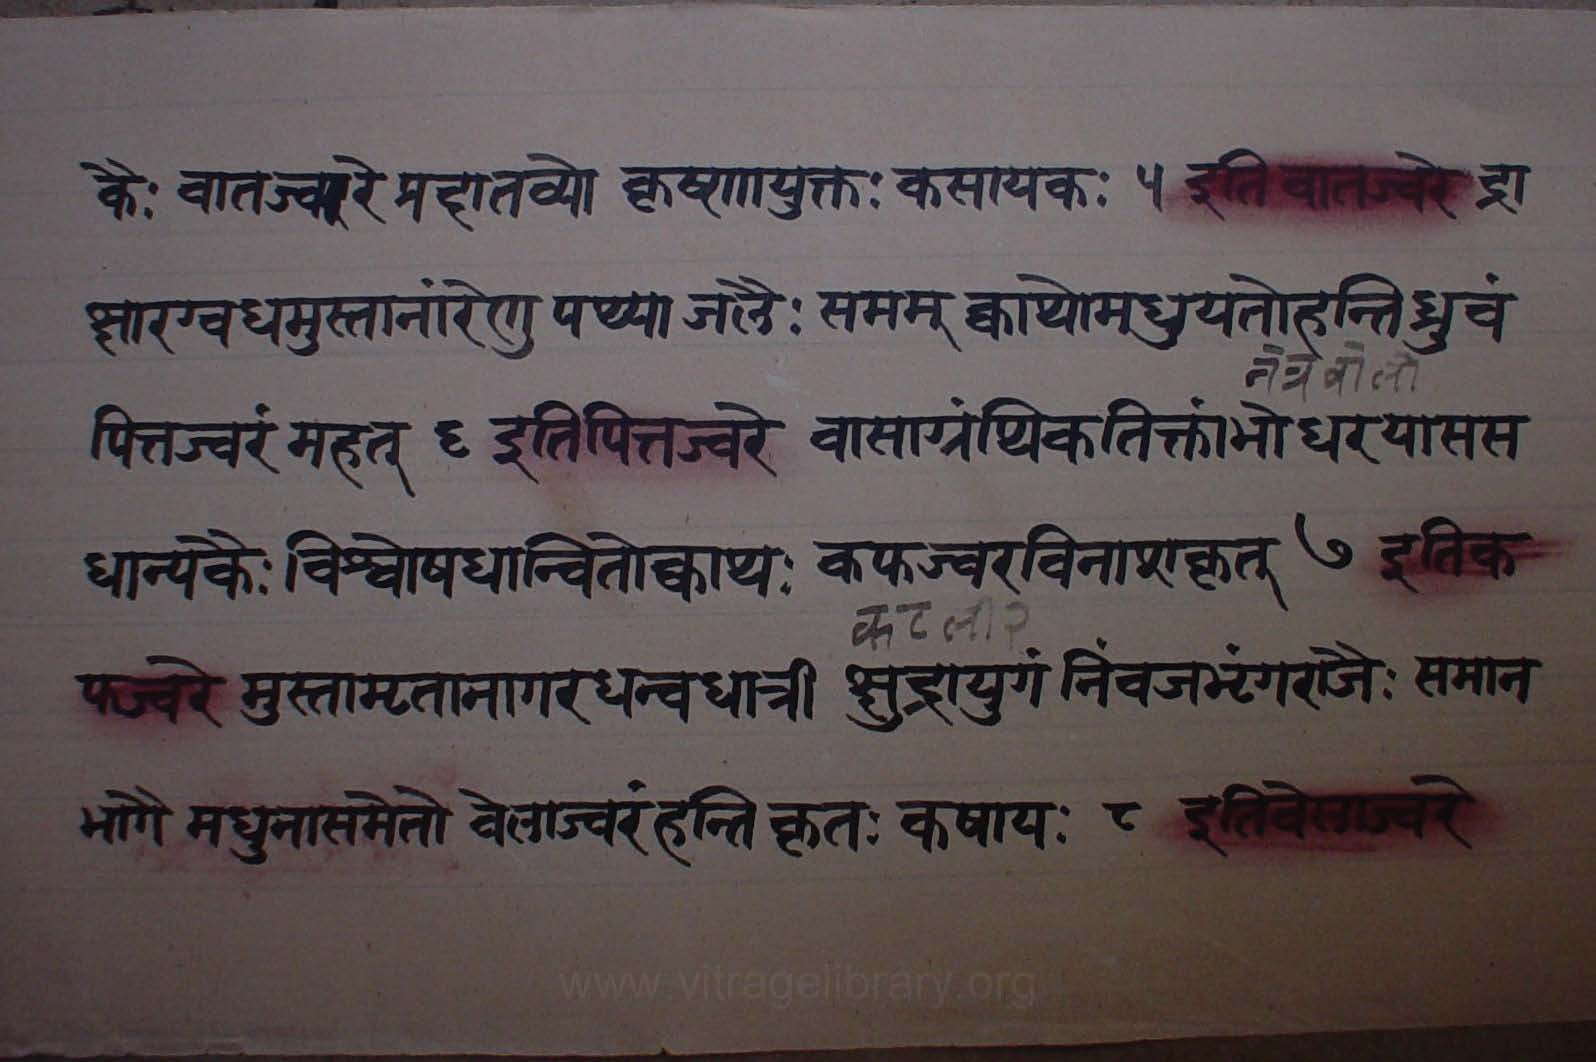 कैः वातज्वरे प्रहातव्यो कृष्णायुक्तः कसायकः ५ इति वातज्वरे द्रा
क्षारग्वधमुस्तानांरेणु पथ्या जलैः समम् क्वाथोमधुयतोहन्तिध्रुवं
नेत्र बोलो
पित्तज्वरं महत् ६ इतिपित्तज्वरे वासाग्रंथिकतिक्तांभोधरयासस
धान्यकैः विश्वोषधान्वितोक्वाथः कफज्वरविनाशकृत् ७ इतिक
फज्वरे मुस्तामृतानागरधन्वधात्री क्षुद्रायुगं निंवजभृंगराजैः समान
भागै मधुनासमेतो वेलाज्वरंहन्ति कृतः कषायः ८ इतिवेलाज्वरे
www.vitragelibrary.org